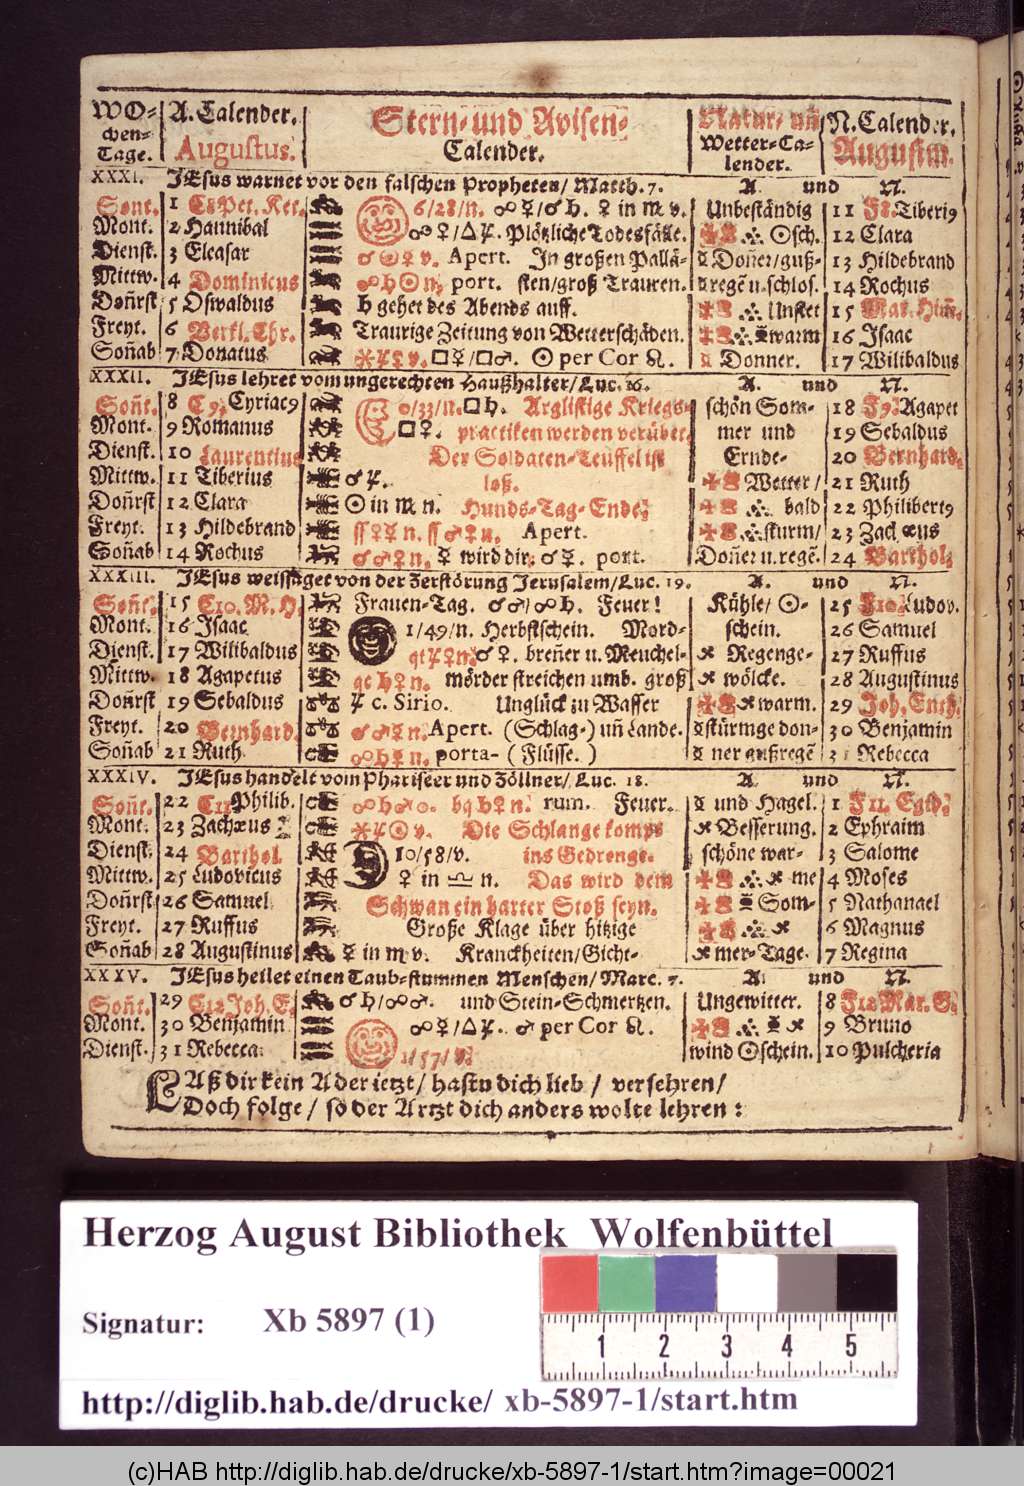 WO- A. Calender. Stern- und Avisen- Natur- uñ N. Calender.
chen- Augustus. Calender. Wetter-Ca- Augustus.
Tage. lender.
XXXI. JEsus warnet vor den falschen Propheten/ Matth. 7. A. und N.
Sont. 1 C8 Pet. Ket. 6/28/n. ☍ ☿/♂ ♄. ♀ in ♍ v. Unbeständig 11 F8. Tiberi9
Mont. 2 Hannibal ☍ ♀/△ ♃. Plötzliche Todesfälle. ☉sch. 12 Clara
Dienst. 3 Eleasar Apert. In großen Pallä- Doñer/guß- 13 Hildebrand
Mittw. 4 Dominicus ☍ ♄ ☉ n. port. sten/groß Trauren. regẽ u. schlos. 14 Rochus
Doñrst 5 Oswaldus ♄ gehet des Abends auff. Unstet 15 Mar. Him̃.
Freyt. 6 Verkl. Chr. Traurige Zeitung von Wetterschäden. warm 16 Isaac
Soñab 7 Donatus □ ☿/□ ♂. ☉ per Cor ♌. Donner. 17 Wilibaldus
XXXII. JEsus lehret vom ungerechten Haußhalter/ Luc. 16. A. und N.
Soñt. 8 C9. Cyriac9 0/33/n. □ ♄. Arglistige Kriegs- schön Som- 18 F9. Agapet
Mont. 9 Romanus □ ♀. practiken werden verübet. mer und 19 Sebaldus
Dienst. 10 Laurentius Der Soldaten-Teuffel ist Ernde- 20 Bernhard.
Mittw. 11 Tiberius ♂ ♃. loß. Wetter/ 21 Ruth
Doñrst 12 Clara ☉ in ♍ n. Hunds-Tag-Ende. bald 22 Philibert9
Freyt. 13 Hildebrand Apert. sturm/ 23 Zachæus
Soñab 14 Rochus ☿ wird dir. ♂ ☿. port. Doñer u. regẽ. 24 Barthol.
XXXIII. JEsus weissaget von der Zerstörung Jerusalem/ Luc. 19. A. und N.
Soñt. 15 C10. M. H. Frauen-Tag. ♂ ♂/☍ ♄. Feuer! Kühle/ ☉- 25 F10. Ludov.
Mont. 16 Isaac 1/49/n. Herbstschein. Mord- schein. 26 Samuel
Dienst. 17 Wilibaldus ♂ ♀. breñer u. Meuchel- Regenge- 27 Ruffus
Mittw. 18 Agapetus mörder streichen umb. groß wölcke. 28 Augustinus
Doñrst 19 Sebaldus ♃ c. Sirio. Unglück zu Wasser warm. 29 Joh. Enth.
Freyt. 20 Bernhard. Apert. (Schlag-) uñ Lande. stürmge don- 30 Benjamin
Soñab 21 Ruth porta- (Flüsse.) ner gußregẽ 31 Rebecca
XXXIV. JEsus handelt vom Phariseer und Zöllner/ Luc. 18. A. und N.
Soñt. 22 C11 Philib. rum. Feuer. und Hagel. 1 F11. Egid.
Mont. 23 Zachæus Die Schlange komps Besserung. 2 Ephraim
Dienst. 24 Barthol. 10/58/v. ins Gedrenge. schöne war- 3 Salome
Mittw. 25 Ludovicus ♀ in ♎ n. Das wird dem me 4 Moses
Doñrst. 26 Samuel Schwan ein harter Stoß seyn. Som- 5 Nathanael
Freyt. 27 Ruffus Große Klage über hitzige 6 Magnus
Soñab 28 Augustinus ☿ in ♍ v. Kranckheiten/Gicht- mer-Tage. 7 Regina
XXXV. JEsus heilet einen Taub-stummen Menschen/ Marc. 7. A. und N.
Soñt. 29 C12 Joh. E. ♂ ♄/☍ ♂. und Stein-Schmertzen. Ungewitter. 8 F12 Mar. G.
Mont. 30 Benjamin ☍ ☿/△ ♃. ♂ per Cor ♌. 9 Bruno
Dienst. 31 Rebecca. 1/57/v. wind ☉schein. 10 Pulcheria
LAß dir kein Ader ietzt/ hastu dich lieb/ versehren/
Doch folge/ so der Artzt dich anders wolte lehren:
Herzog August Bibliothek Wolfenbüttel
Signatur: Xb 5897 (1)
1 2 3 4 5
http://diglib.hab.de/drucke/ xb-5897-1/start.htm
(c)HAB http://diglib.hab.de/drucke/xb-5897-1/start.htm?image=00021